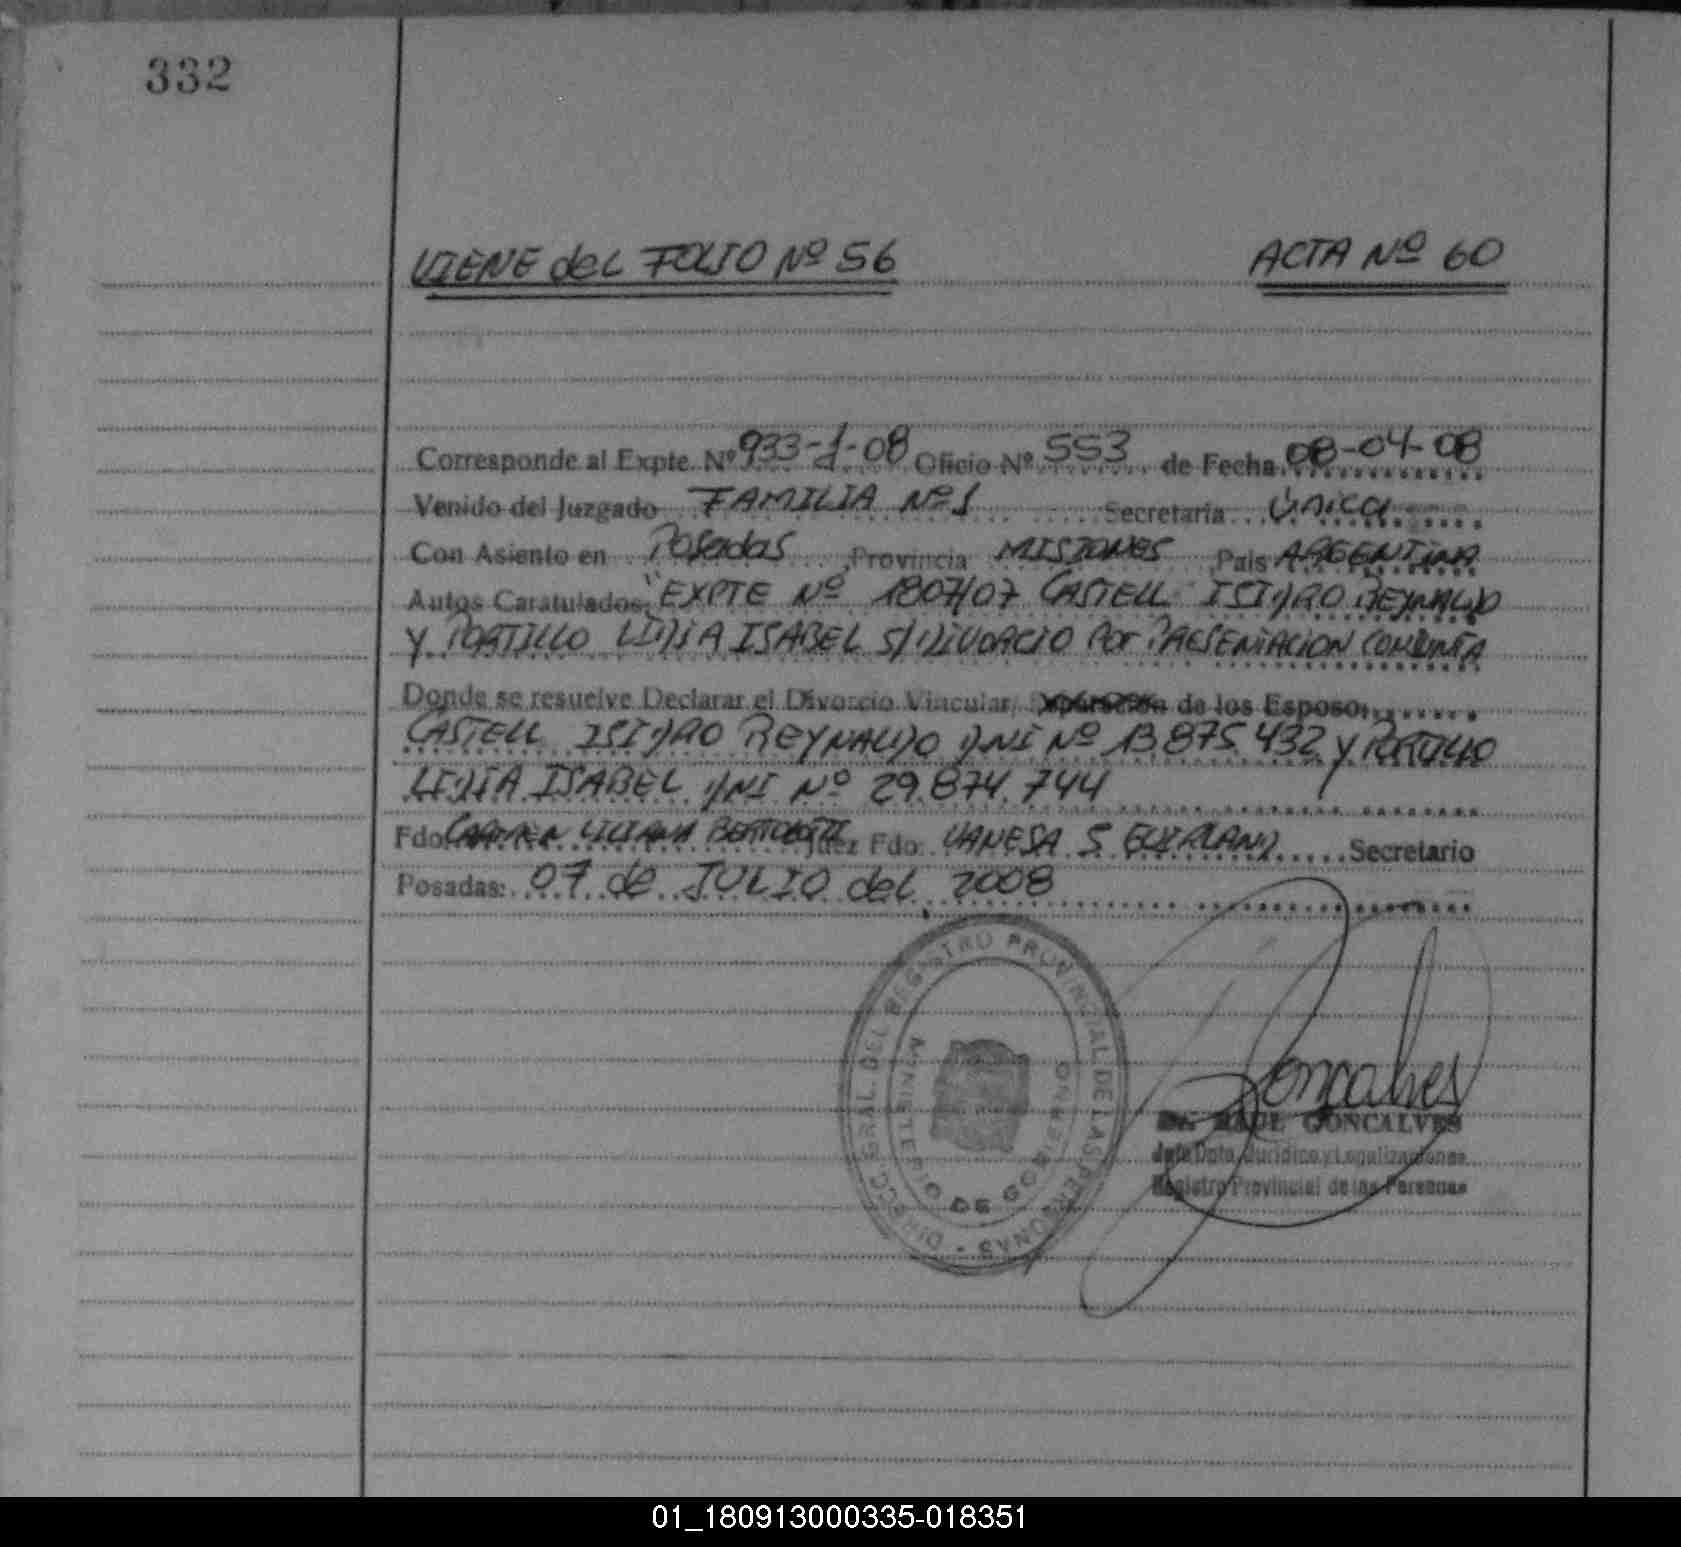 332
VIENE del FOLIO Nº 56 ACTA Nº 60
Corresponde al Expte. Nº 933-1-08 Oficio Nº 553 de Fecha 08-04-08
Venido del Juzgado FAMILIA Nº 1 Secretaria Única
Con Asiento en Posadas Provincia MISIONES Pais ARGENTINA
Autos Caratulados: "EXPTE Nº 1807/07 CASTELL ISIDRO REYNALDO
Y PORTILLO LIDIA ISABEL S/ DIVORCIO POR PRESENTACION CONJUNTA
Donde se resuelve Declarar el Divorcio Vincular, de los Esposo
CASTELL ISIDRO REYNALDO DNI Nº 13.875.432 y PORTILLO
LIDIA ISABEL DNI Nº 29.874.744
Fdo: CARMEN LILIANA Juez Fdo: VANESA S. Secretario
Posadas: 07 de JULIO del 2008
DIRECC. GRAL. DEL REGISTRO PROVINCIAL DE LAS PERSONAS -
MINISTERIO DE GOBIERNO
Goncalves
Dr. RAUL GONCALVES
Jefe Dpto. Jurídico y Legalizaciones
Registro Provincial de las Personas
01_180913000335-018351